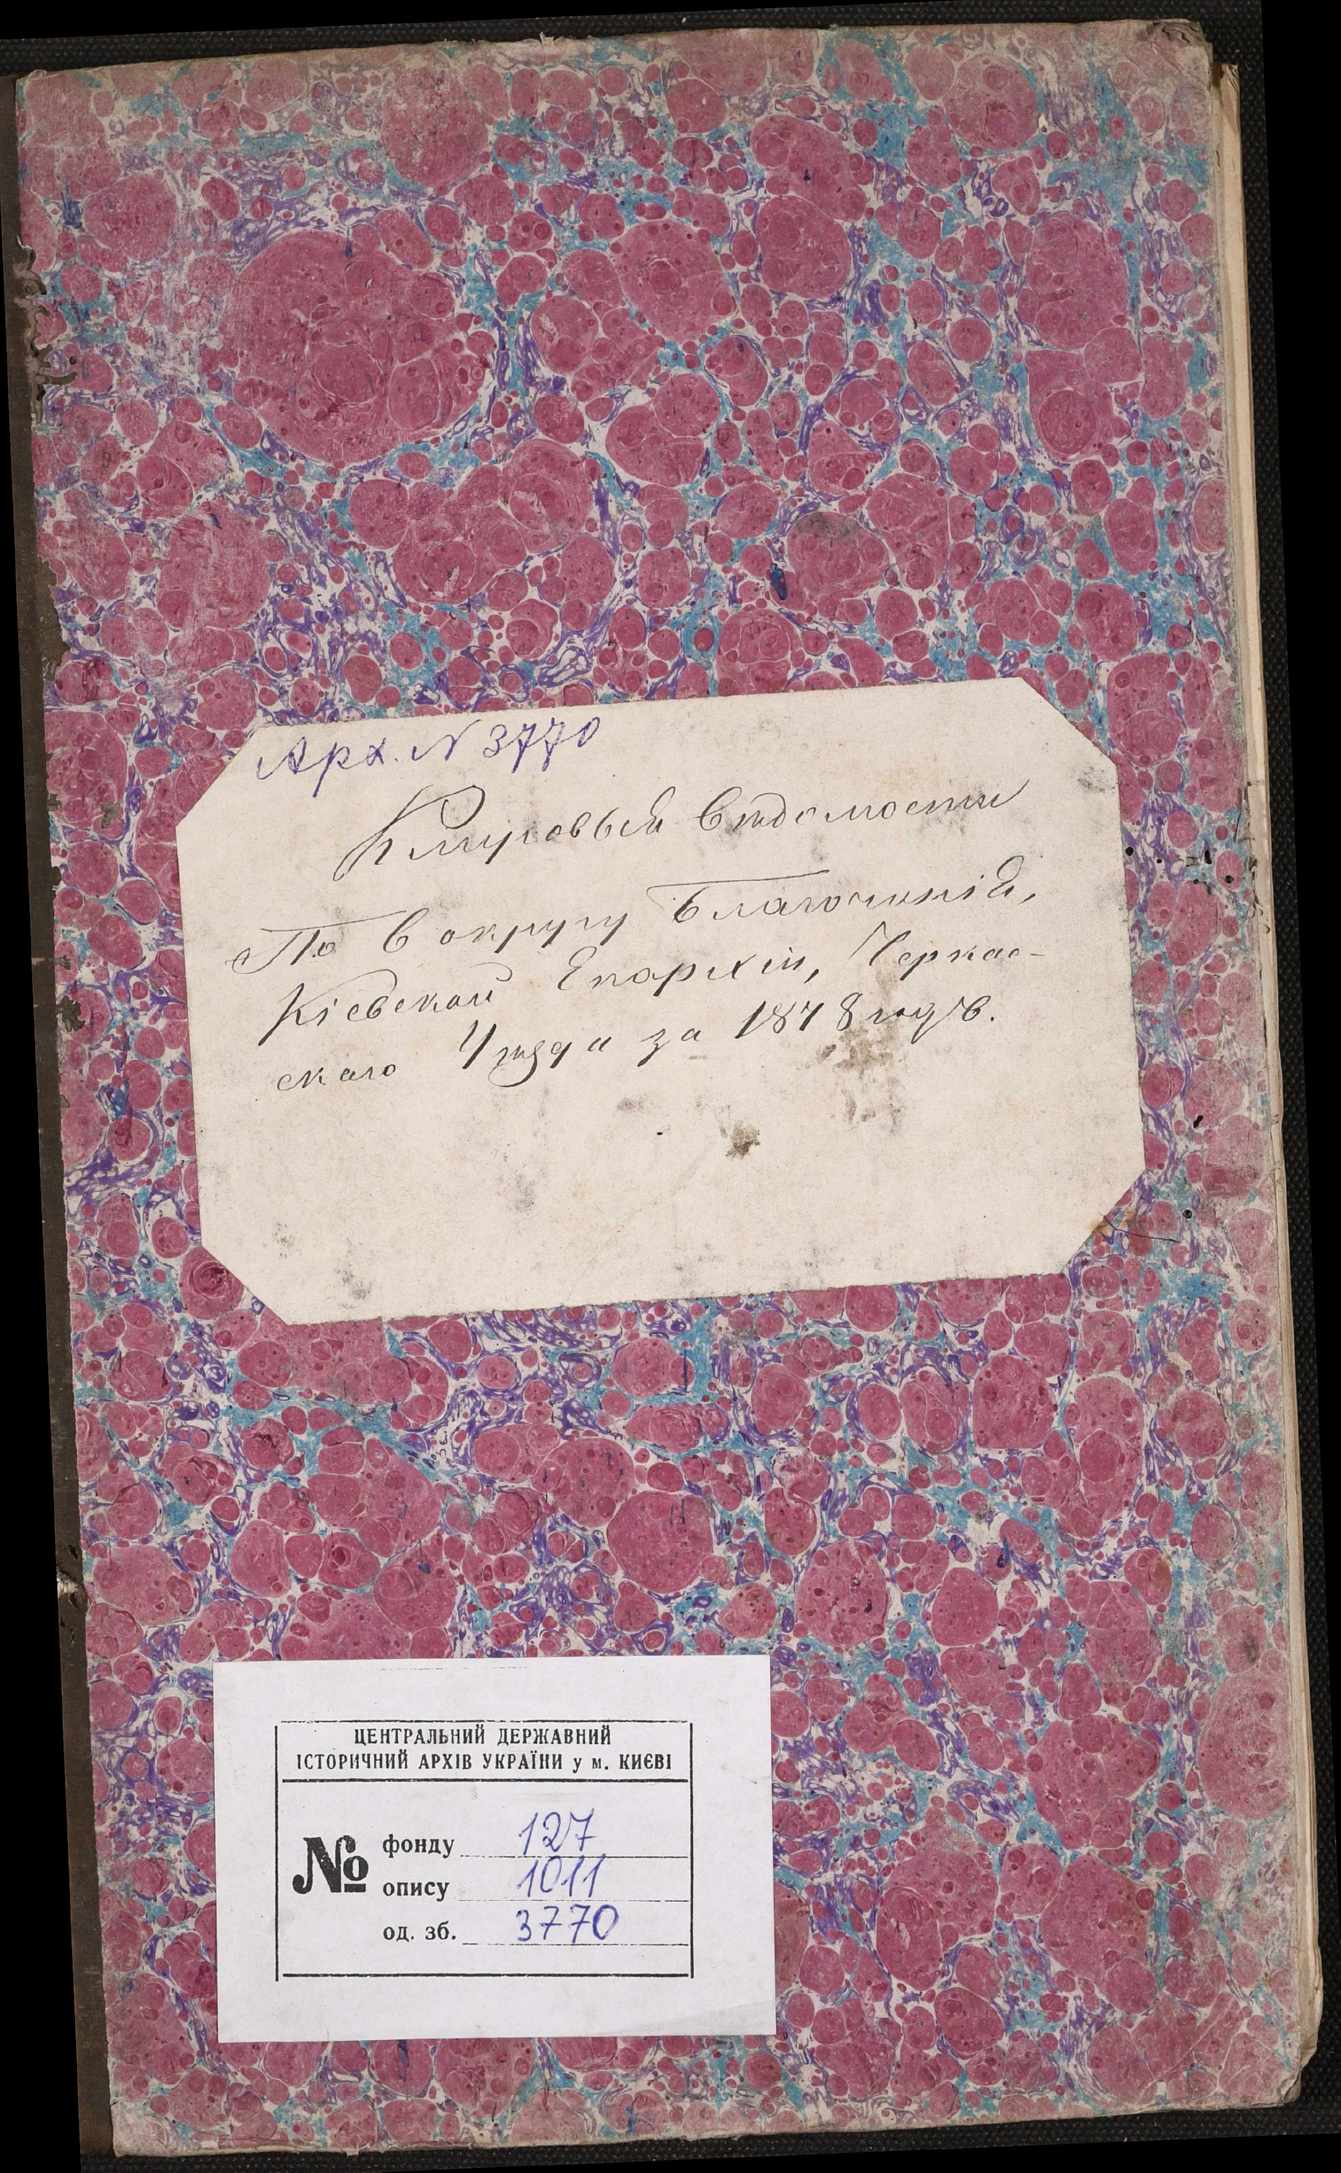 Арх. N 3770
Клировыя вѣдомости
По 6 округу Благочинія,
Кіевской Епархіи, Черкас-
скаго Уѣзда за 1878 годъ.
ЦЕНТРАЛЬНИЙ ДЕРЖАВНИЙ
ІСТОРИЧНИЙ АРХІВ УКРАЇНИ у м. КИЄВІ
№
фонду 127
опису 1011
од. зб. 3770